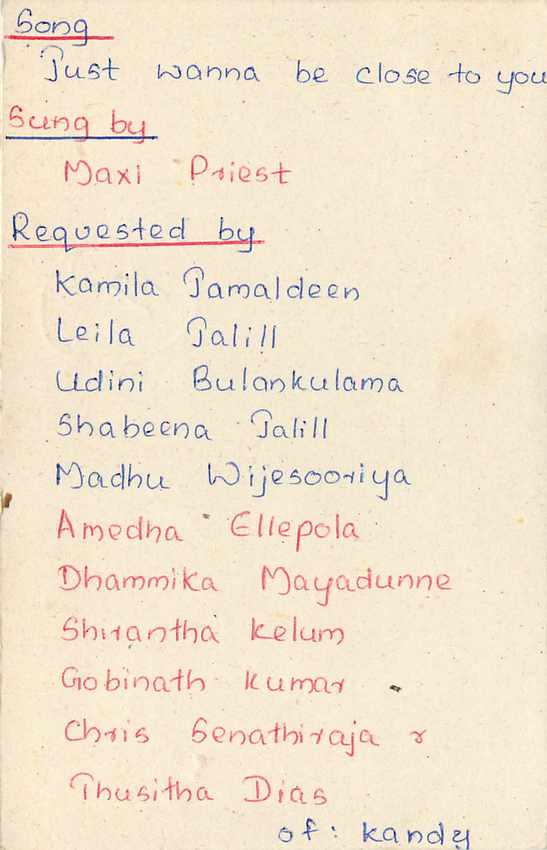 Song
Just wanna be close to you
Sung by
Maxi Priest
Requested by
Kamila Jamaldeen
Leila Jalill
Udini Bulankulama
Shabeena Jalill
Madhu Wijesooriya
Amedha Ellepola
Dhammika Mayadunne
Shirantha Kelum
Gobinath Kumar
Chris Senathiraja r
Thusitha Dias
of: Kandy